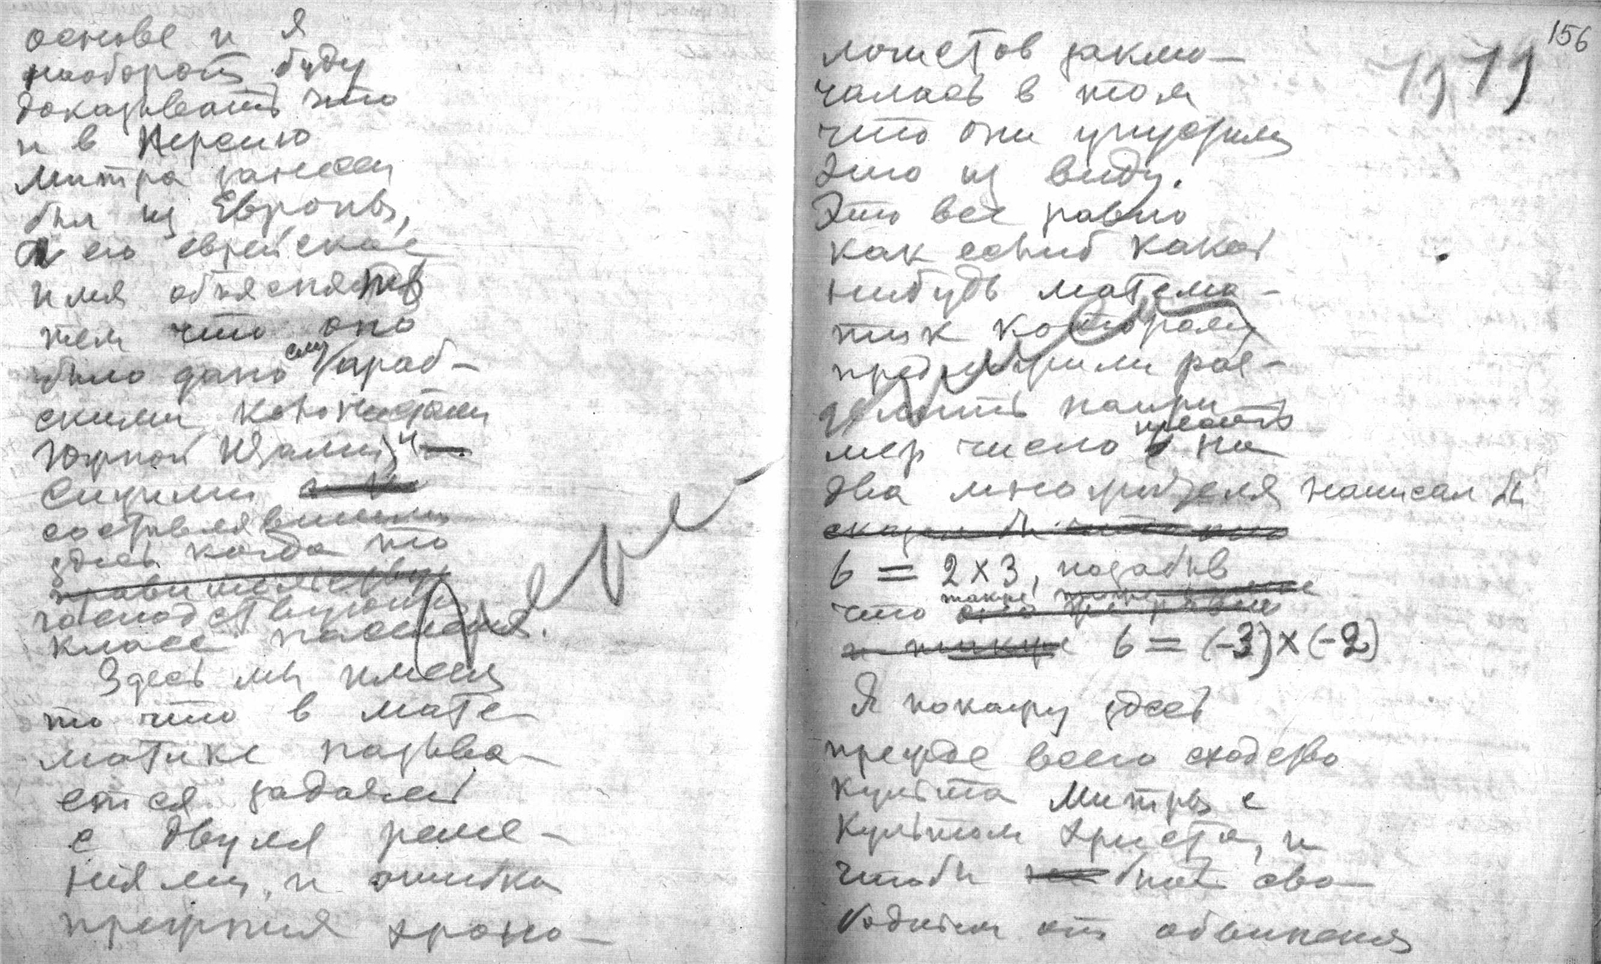 основе и я
наоборот буду
доказывать что
и в Персию
Митра занесен
был из Европы,
а его еврейское
имя объясняется
тем что оно
было дано ему араб-
скими колонистами
Южной Италии и
Сицилии
составлявшими
здесь когда то
господствующий
класс населения.
Здесь мы имеем
то что в мате
матике называ-
ется задачей
с двумя реше-
ниями, и ошибка
прежния хроно-
156
логистов заклю-
чалась в том
что они упустили
это из виду.
Это все равно
как еслиб какой
нибудь матема-
тик которому
предложили раз-
делить напри
мер число шесть на
два множителя написал б
6 = 2×3, позабыв
что также
6 = (-3)×(-2)
Я покажу здесь
прежде всего сходство
культа Митры с
культом Христа, и
чтобы быть сво
бодным от обвинения